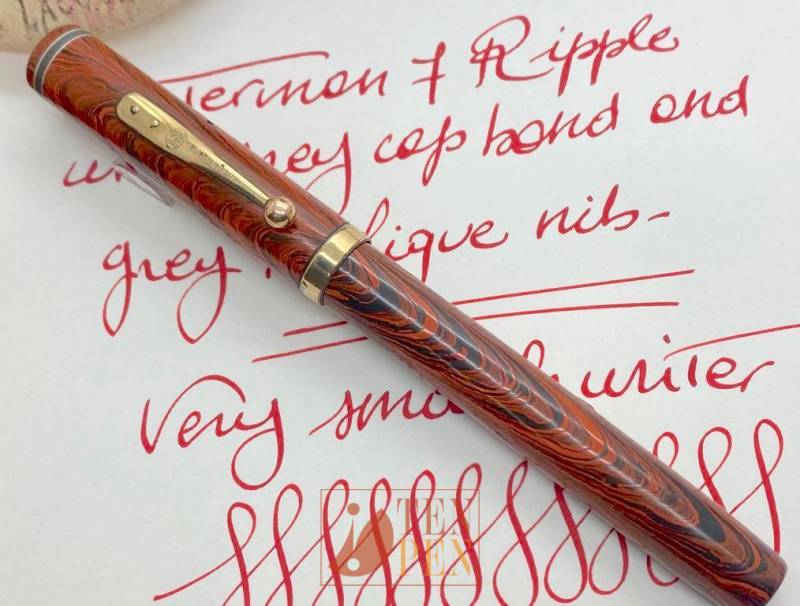 terman 7 Ripple
grey cap band and
grey ique nib-
Very smo writer
TEN
PEN